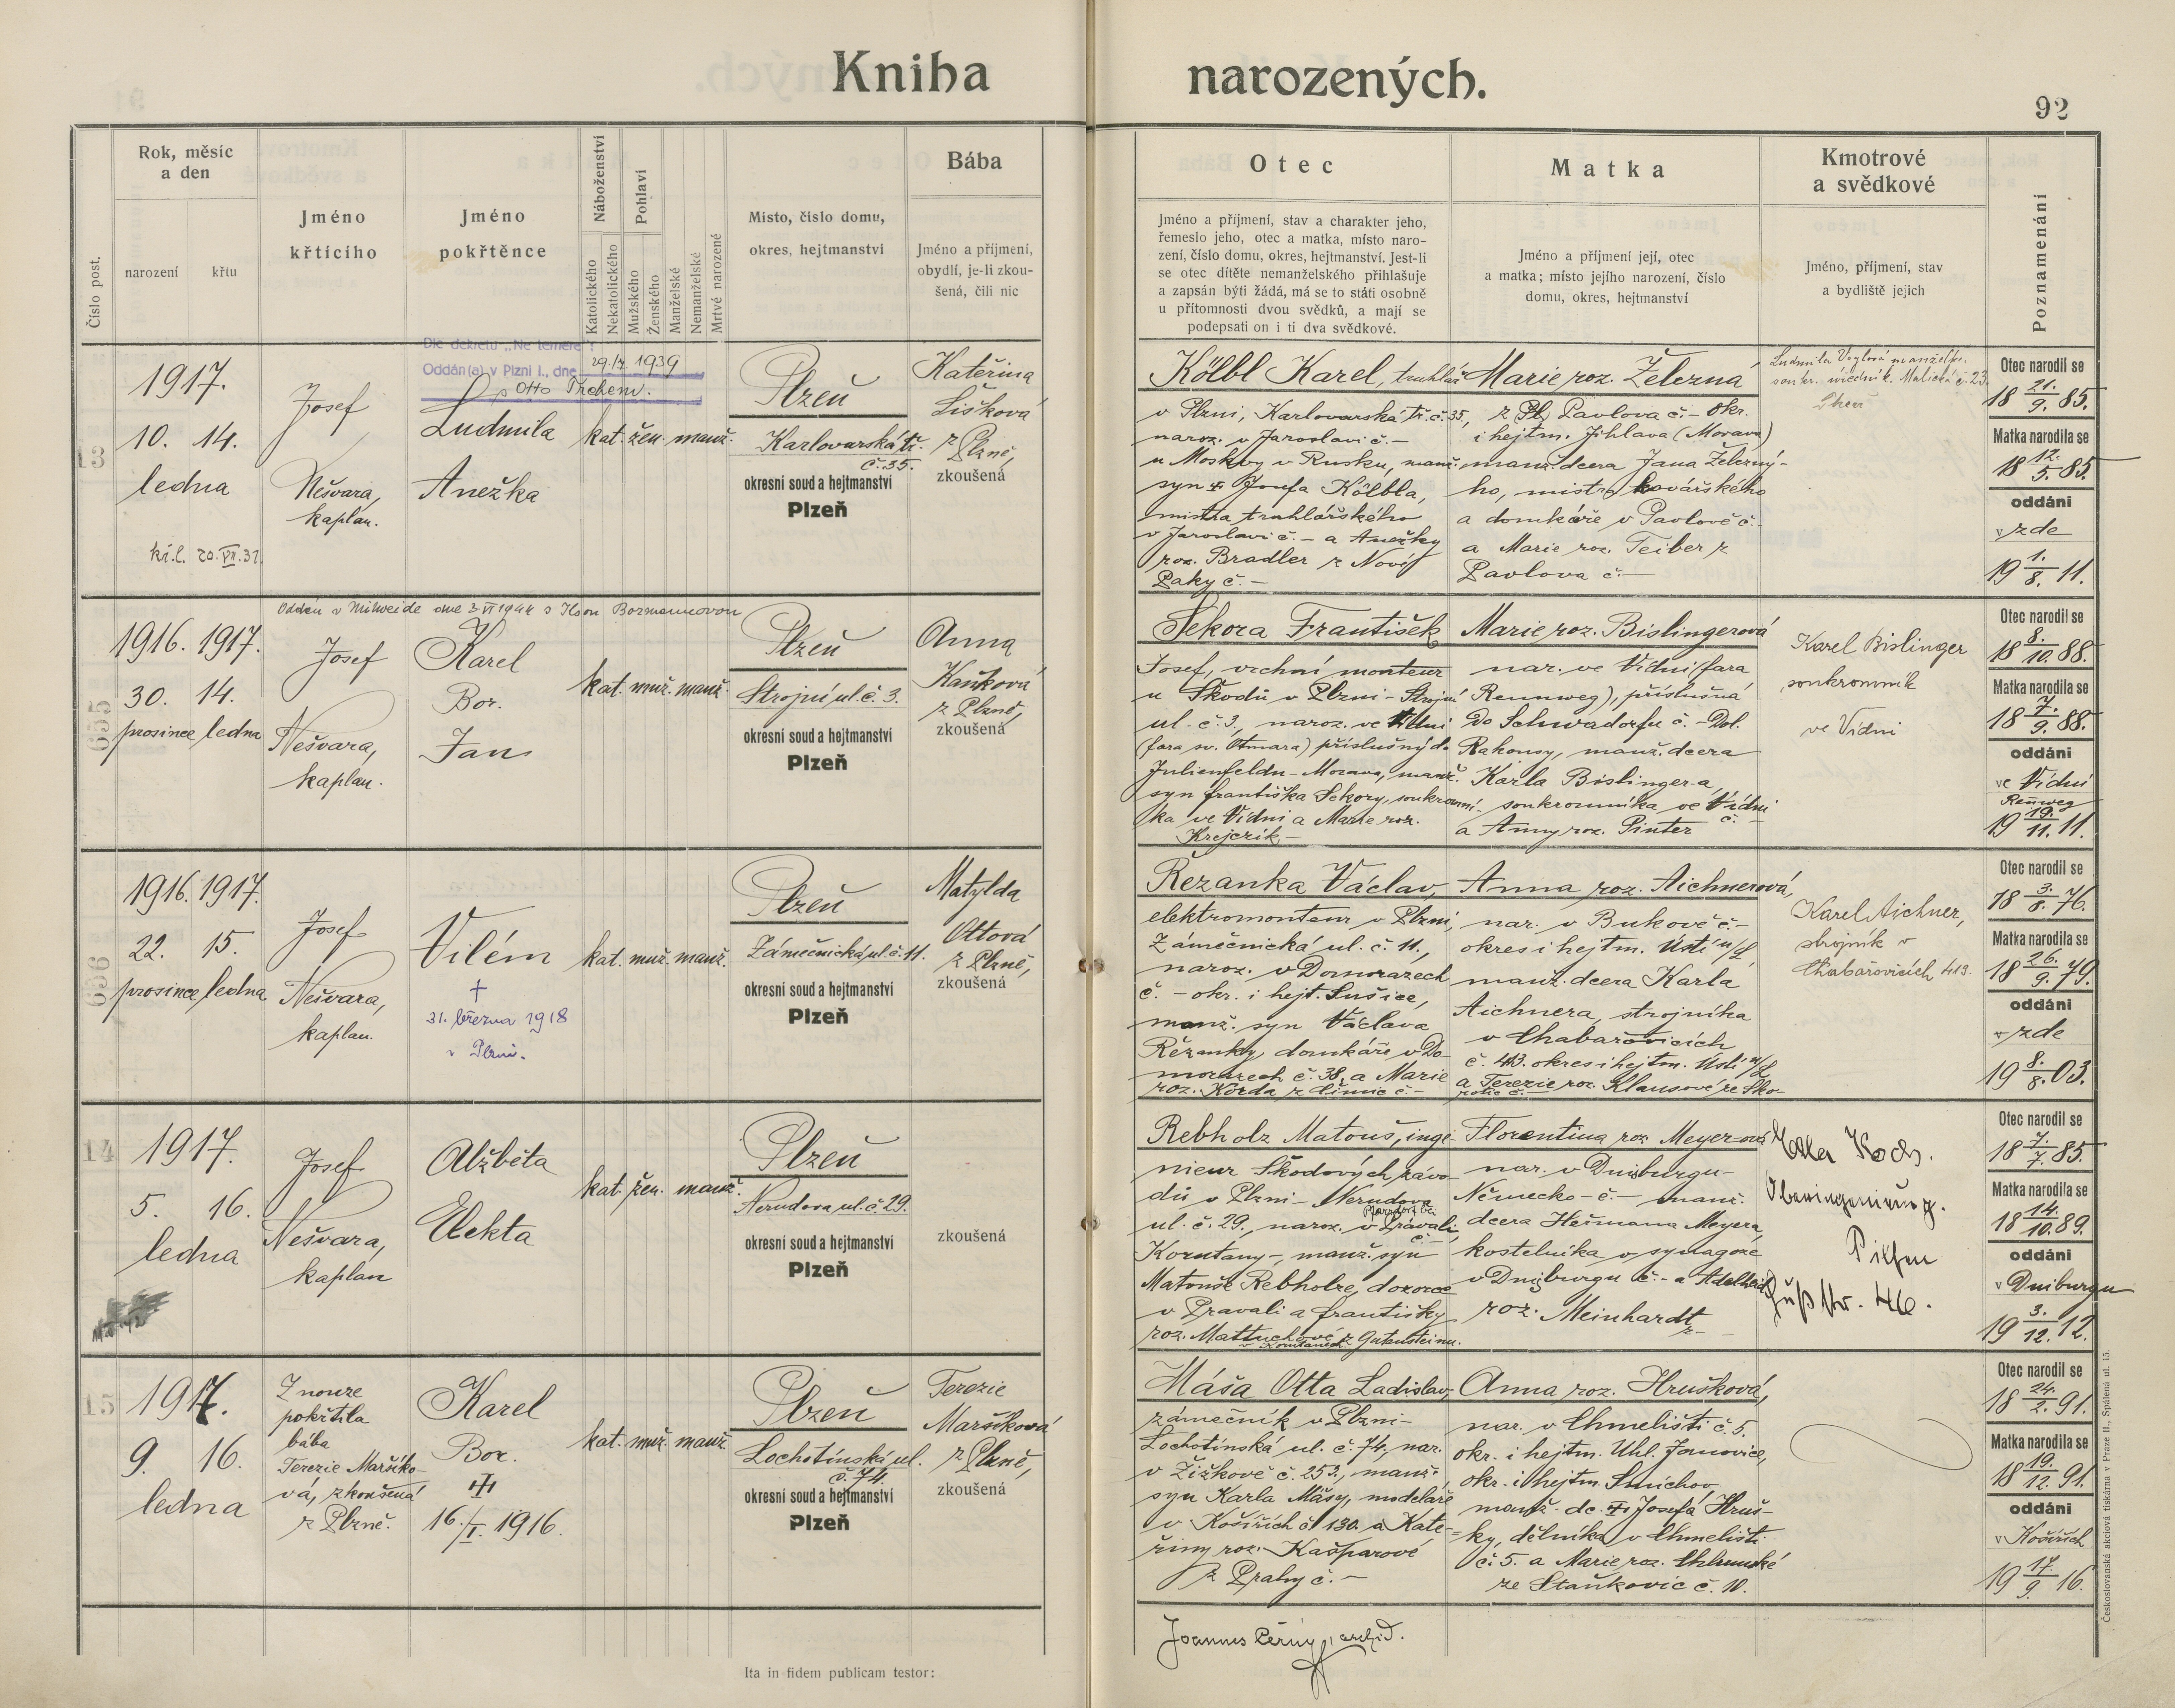 Kniha narozených.
92
Číslo post.
Rok, měsíc
a den
narození
křtu
Jméno
křtícího
Jméno
pokřtěnce
Náboženství
Katolického
Nekatolického
Pohlaví
Mužského
Ženského
Manželské
Nemanželské
Mrtvě narozené
Místo, číslo domu,
okres, hejtmanství
Bába
Jméno a příjmení,
obydlí, je-li zkou-
šená, čili nic
Otec
Jméno a příjmení, stav a charakter jeho,
řemeslo jeho, otec a matka, místo naro-
zení, číslo domu, okres, hejtmanství. Jest-li
se otec dítěte nemanželského přihlašuje
a zapsán býti žádá, má se to státi osobně
u přítomnosti dvou svědků, a mají se
podepsati on i ti dva svědkové.
Matka
Jméno a příjmení její, otec
a matka; místo jejího narození, číslo
domu, okres, hejtmanství
Kmotrové
a svědkové
Jméno, příjmení, stav
a bydliště jejich
Poznamenání
13
1917.
10. 14.
ledna
Josef
Nešvara,
kaplan.
Dle dekretu „Ne temere":
Oddán(a) v Plzni I., dne 29./7 1939
Otto
Ludmila
Anežka
kat. žen. manž.
Plzeň
Karlovarská tř.
č. 35.
okresní soud a hejtmanství
Plzeň
Kateřina
Lišková
z Plzně,
zkoušená
Kölbl Karel, truhlář
v Plzni, Karlovarská tř. č. 35,
naroz. v Jaroslavi č. –
u Moskvy v Rusku, manž.
syn † Josefa Kölbla,
mistra truhlářského
v Jaroslavi č. – a Anežky
roz. Bradler z Nové
Paky č. –
Marie roz. Železná
z Pavlova č. – okr.
i hejtm. Jihlava (Morava)
manž. dcera Jana Železný-
ho, mistra kovářského
a domkáře v Pavlově č. –
a Marie roz. Teiber z
Pavlova č. –
Ludmila
Malická č. 23.
Otec narodil se
18 21./9. 85.
Matka narodila se
18 12./5. 85.
oddáni
v zde
19 1./8. 11.
655
1916. 1917.
30. 14.
prosince ledna
Josef
Nešvara,
kaplan.
Karel
Bor.
Jan
kat. muž. manž.
Plzeň
Strojní ul. č. 3.
okresní soud a hejtmanství
Plzeň
Anna
Kaňková
z Plzně,
zkoušená
Sekora František
Josef, vrchní monteur
u Škodů v Plzni – Strojní
ul. č. 3, naroz. ve Vídni
(fara sv. Otmara) příslušný do
Julienfeldu – Morava, manž.
syn Františka Sekory, soukromní-
ka ve Vídni a Marie roz.
Krejczik –
Marie roz. Bislingerová
nar. ve Vídni (fara
Rennweg), příslušná
do Schwadorfu č. – Dol.
Rakousy, manž. dcera
Karla Bislinger-a,
soukromníka ve Vídni č. –
a Anny roz. Pinter
Karel Bislinger
soukromník
ve Vídni
Otec narodil se
18 8./10. 88.
Matka narodila se
18 7./9. 88.
oddáni
ve Vídni
Rennweg
19 19./11. 11.
656
1916. 1917.
22. 15.
prosince ledna
Josef
Nešvara,
kaplan.
Vilém
†
31. března 1918
v Plzni.
kat. muž. manž.
Plzeň
Zámečnická ul. č. 11.
okresní soud a hejtmanství
Plzeň
Matylda
Ottová
z Plzně,
zkoušená
Řezanka Václav,
elektromonteur v Plzni,
Zámečnická ul. č. 11.,
naroz. v Domorazech
č. – okr. i hejt. Sušice,
manž. syn Václava
Řezanky, domkáře v Do-
morazech č. 38, a Marie
roz. Korda č. –
Anna roz. Aichnerová,
nar. v Bukově č. –
okres i hejtm. Ústí n/L,
manž. dcera Karla
Aichnera, strojníka
v Chabařovicích
č. 413. okres i hejtm. Ústí n/L
a Terezie roz. Klausové
Karel Aichner,
strojník v
Chabařovicích 413.
Otec narodil se
18 3./8. 76.
Matka narodila se
18 26./9. 79.
oddáni
v zde
19 8./8. 03.
14
1917.
5. 16.
ledna
Josef
Nešvara,
kaplan
Alžběta
Elekta
kat. žen. manž.
Plzeň
Nerudova ul. č. 29.
okresní soud a hejtmanství
Plzeň
zkoušená
Rebholz Matouš, inge-
nieur Škodových závo-
dů v Plzni – Nerudova
ul. č. 29., naroz. v Pravali, č. –
Korutany –, manž. syn
Matouše Rebholze, dozorce
v Pravali a Františky
roz. z Gutensteinu.
Florentina roz. Meyer-ová
nar. v Duisburgu –
Německo – č. – manž.
dcera Heřmana Meyera,
kostelníka v synagoze
v Duisburgu č. – a Adelheid
roz. Meinhardt
Koch.
Oberingenieur
Pilsen
Otec narodil se
18 7./7. 85.
Matka narodila se
18 14./10. 89.
oddáni
v Duiburgu
19 3./12. 12.
15
1917.
9. 16.
ledna
Z nouze
pokřtila
bába
Terezie Maršíko-
vá, zkoušená
z Plzně.
Karel
Bor.
16./I. 1916.
kat. muž. manž.
Plzeň
Lochotínská ul.
č. 74
okresní soud a hejtmanství
Plzeň
Terezie
Maršíková
z Plzně,
zkoušená
Máša Otta Ladislav,
zámečník v Plzni –
Lochotínská ul. č. 74, nar.
v Žižkově č. 253., manž.
syn Karla Mášy, modeláře
v Košířích č. 130. a Kate-
řiny roz. Kašparové
z Prahy č. –
Anna roz. Hrušková,
nar. v Chmelišti č. 5.
okr. i hejtm. Uhl. Janovice,
okr. i hejtm. Smíchov,
manž. dc. † Josefa Hruš-
ky, dělníka v Chmelišti
č. 5. a Marie roz. Chlumské
ze Staňkovic č. 10.
Otec narodil se
18 24./2. 91.
Matka narodila se
18 19./12. 91.
oddáni
v Košířích
19 17./9. 16.
Ita in fidem publicam testor:
Joannes Černý, archid.
Českoslovanská akciová tiskárna v Praze II., Spálená ul. 15.